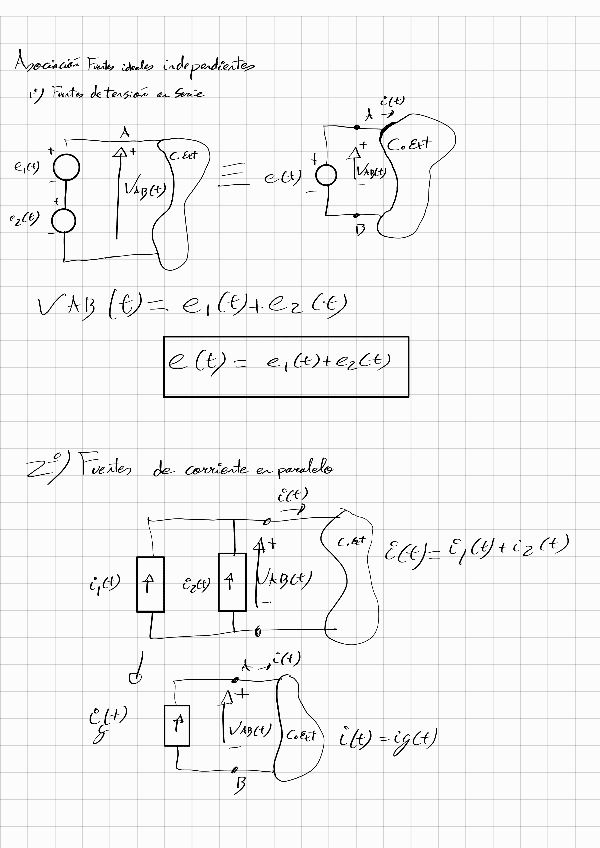 Asociación Fuentes ideales independientes
1º) Fuentes de tensión en Serie
i(t)
A
A
+
+
+
C.Ext
C.Ext
e₁(t)
VAB(t)
e(t)
+
VAB(t)
+
e₂(t)
-
-
-
B
VAB(t) = e₁(t)+e₂(t)
e(t) = e₁(t)+e₂(t)
2º) Fuentes de corriente en paralelo
i(t)
+
C.Ext
i(t) = i₁(t)+i₂(t)
i₁(t)
i₂(t)
VAB(t)
-
A
i(t)
ig(t)
+
VAB(t)
C.Ext
i(t) = ig(t)
-
B